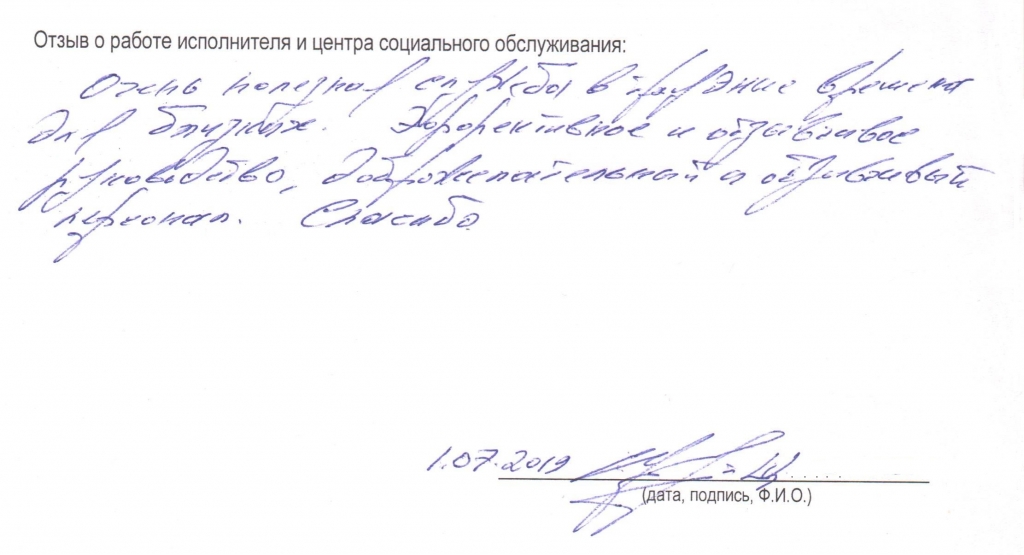 Отзыв о работе исполнителя и центра социального обслуживания:
Очень полезная служба в трудные времена
для близких. Эффективное и отзывчивое
руководство, доброжелательный и отзывчивый
персонал. Спасибо
1.07.2019
(дата, подпись, Ф.И.О.)